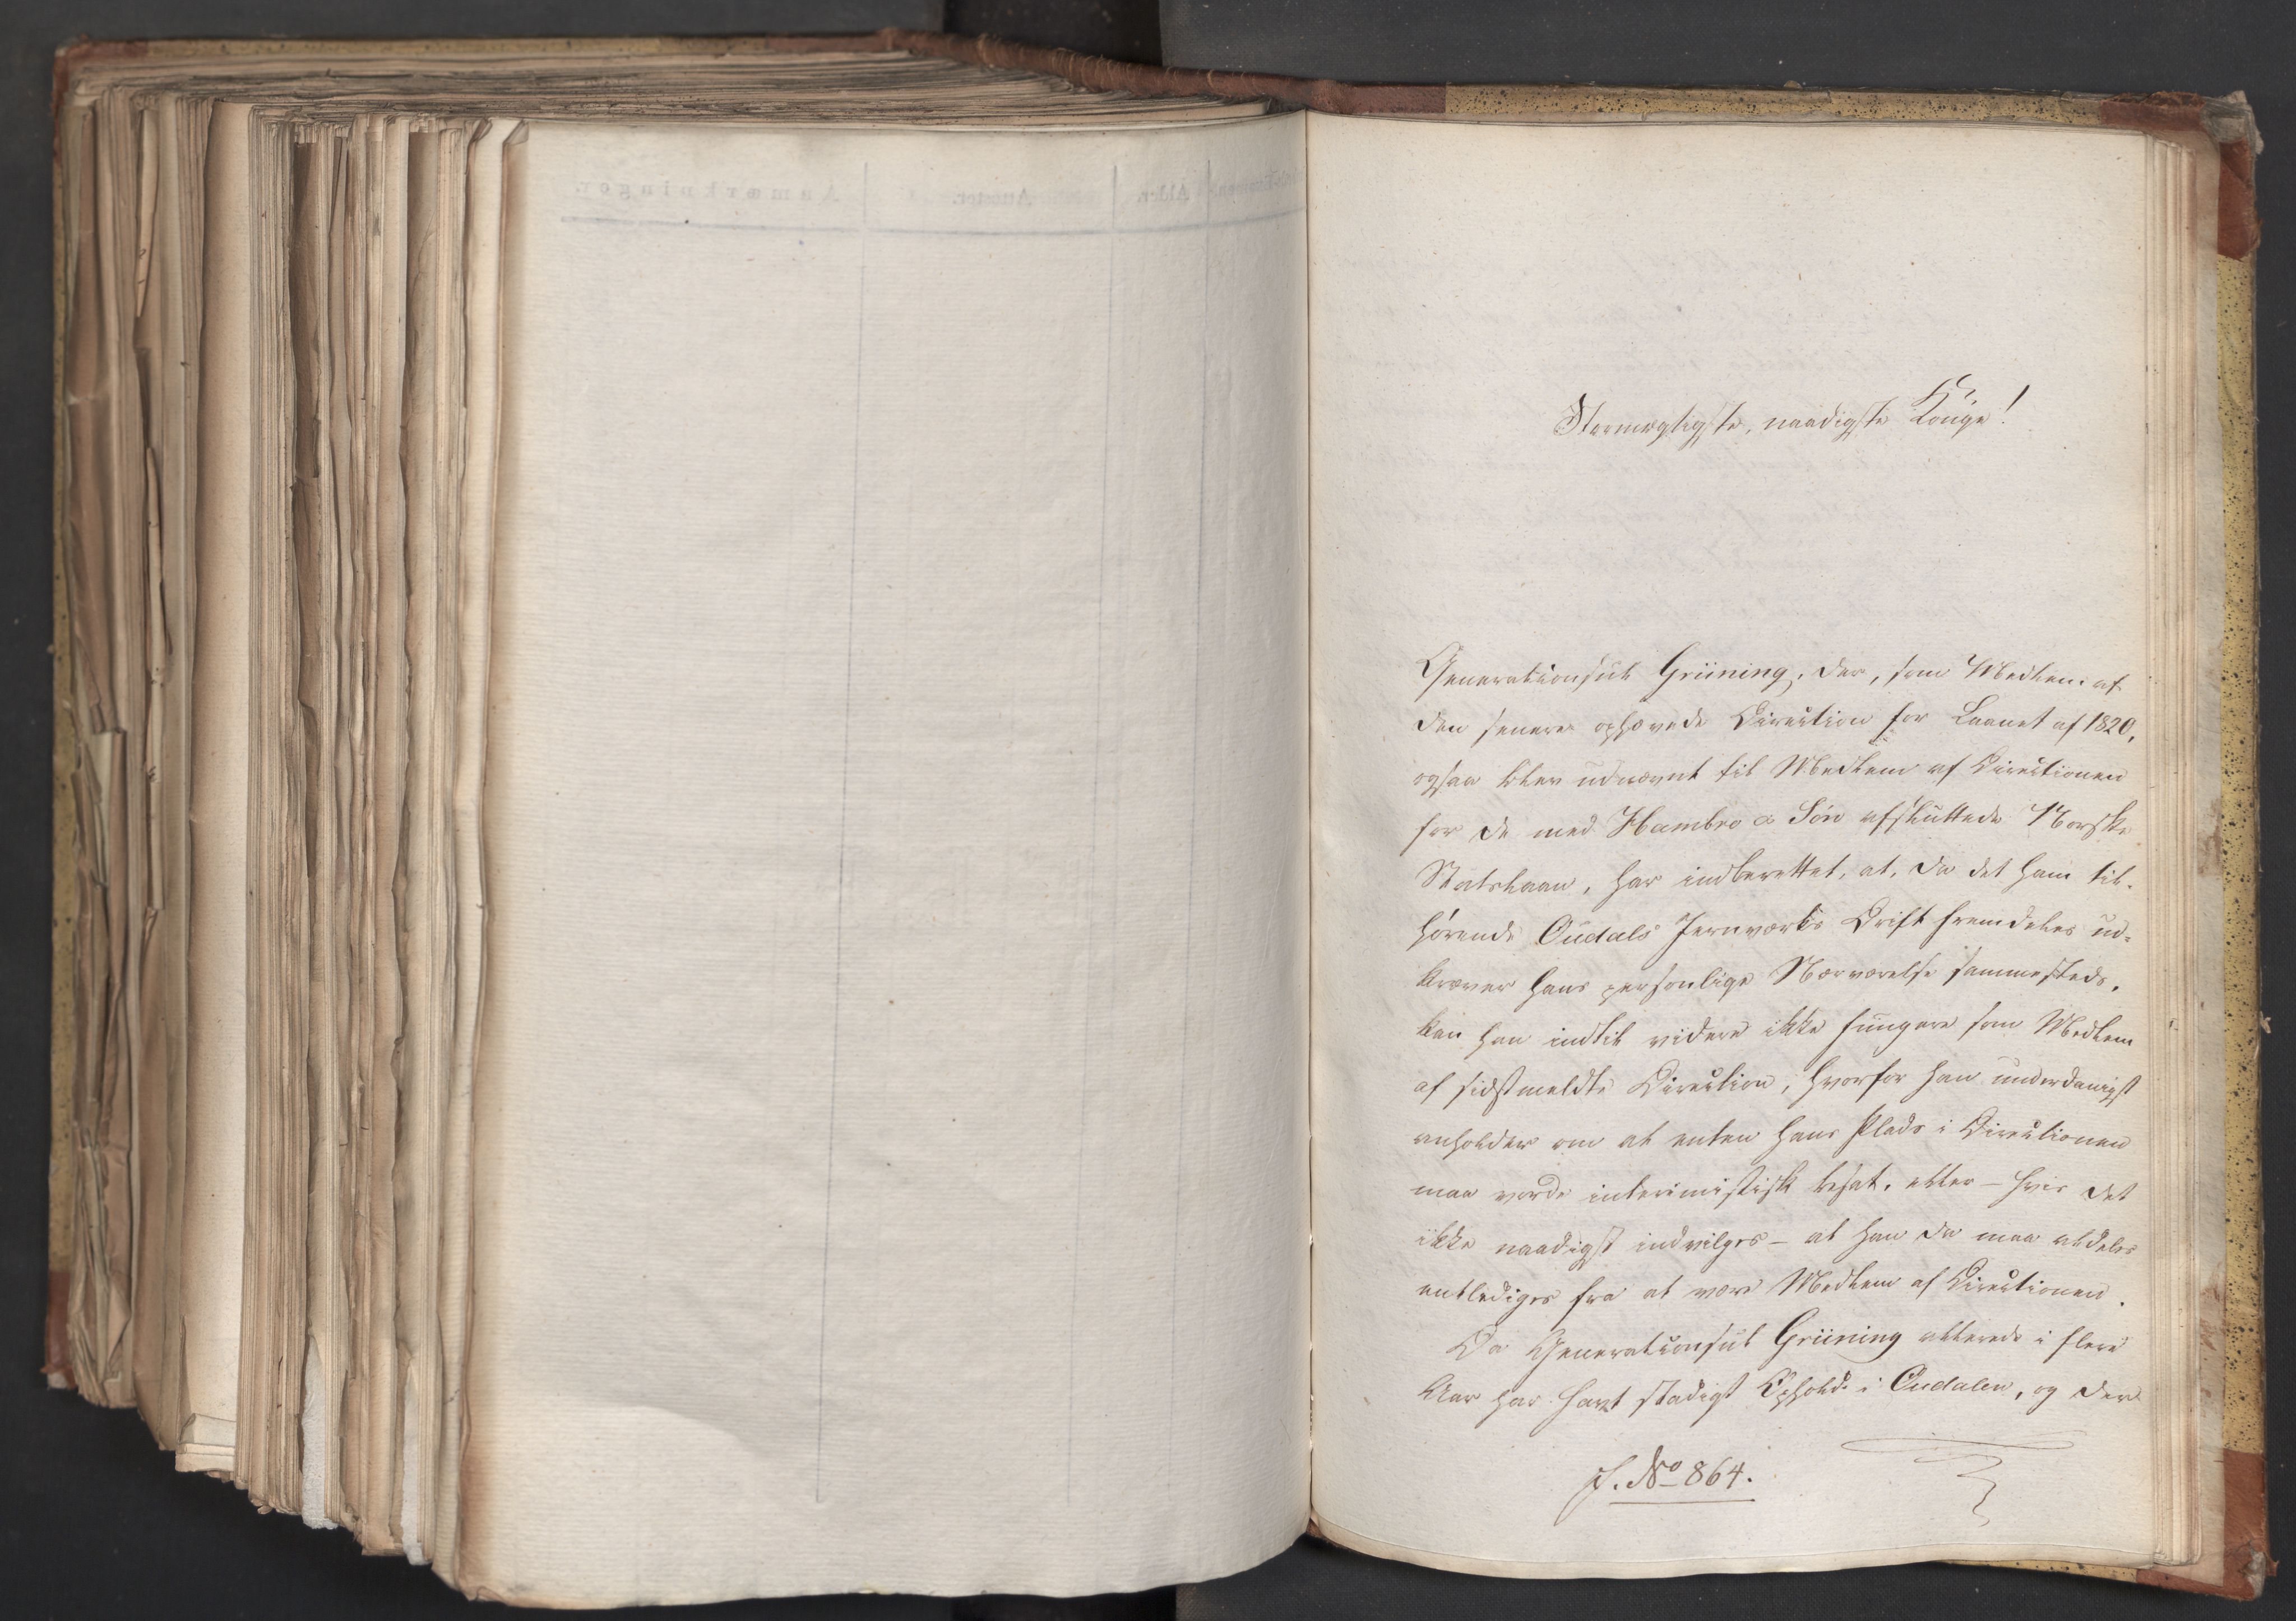 Stormægtigste, naadigste Konge!
Generalconsul Grüning, der, som Medlem af
den senere ophævede Direction for Laanet af 1820,
ogsaa blev udnævnt til Medlem af Directionen
for de med Hambro & Søn afsluttede Norske
Statslaan, har indberettet, at, da det ham til-
hørende Oudals Jernværks Drift fremdeles ud-
kræver hans personlige Nærværelse sammesteds,
kan han indtil videre ikke fungere som Medlem
af sidstmeldte Direction, hvorfor han underdanigst
anholder om at enten hans Plads i Directionen
maa vorde interimistisk besat, eller - hvis det
ikke naadigst indvilges - at han da maa aldeles
entlediges fra at være Medlem af Directionen.
Da Generalconsul Grüning allerede i flere
Aar har havt stadigt Ophold i Oudalen, og der
J. No 864.
Anmærkninger.
Attester.
Alder.